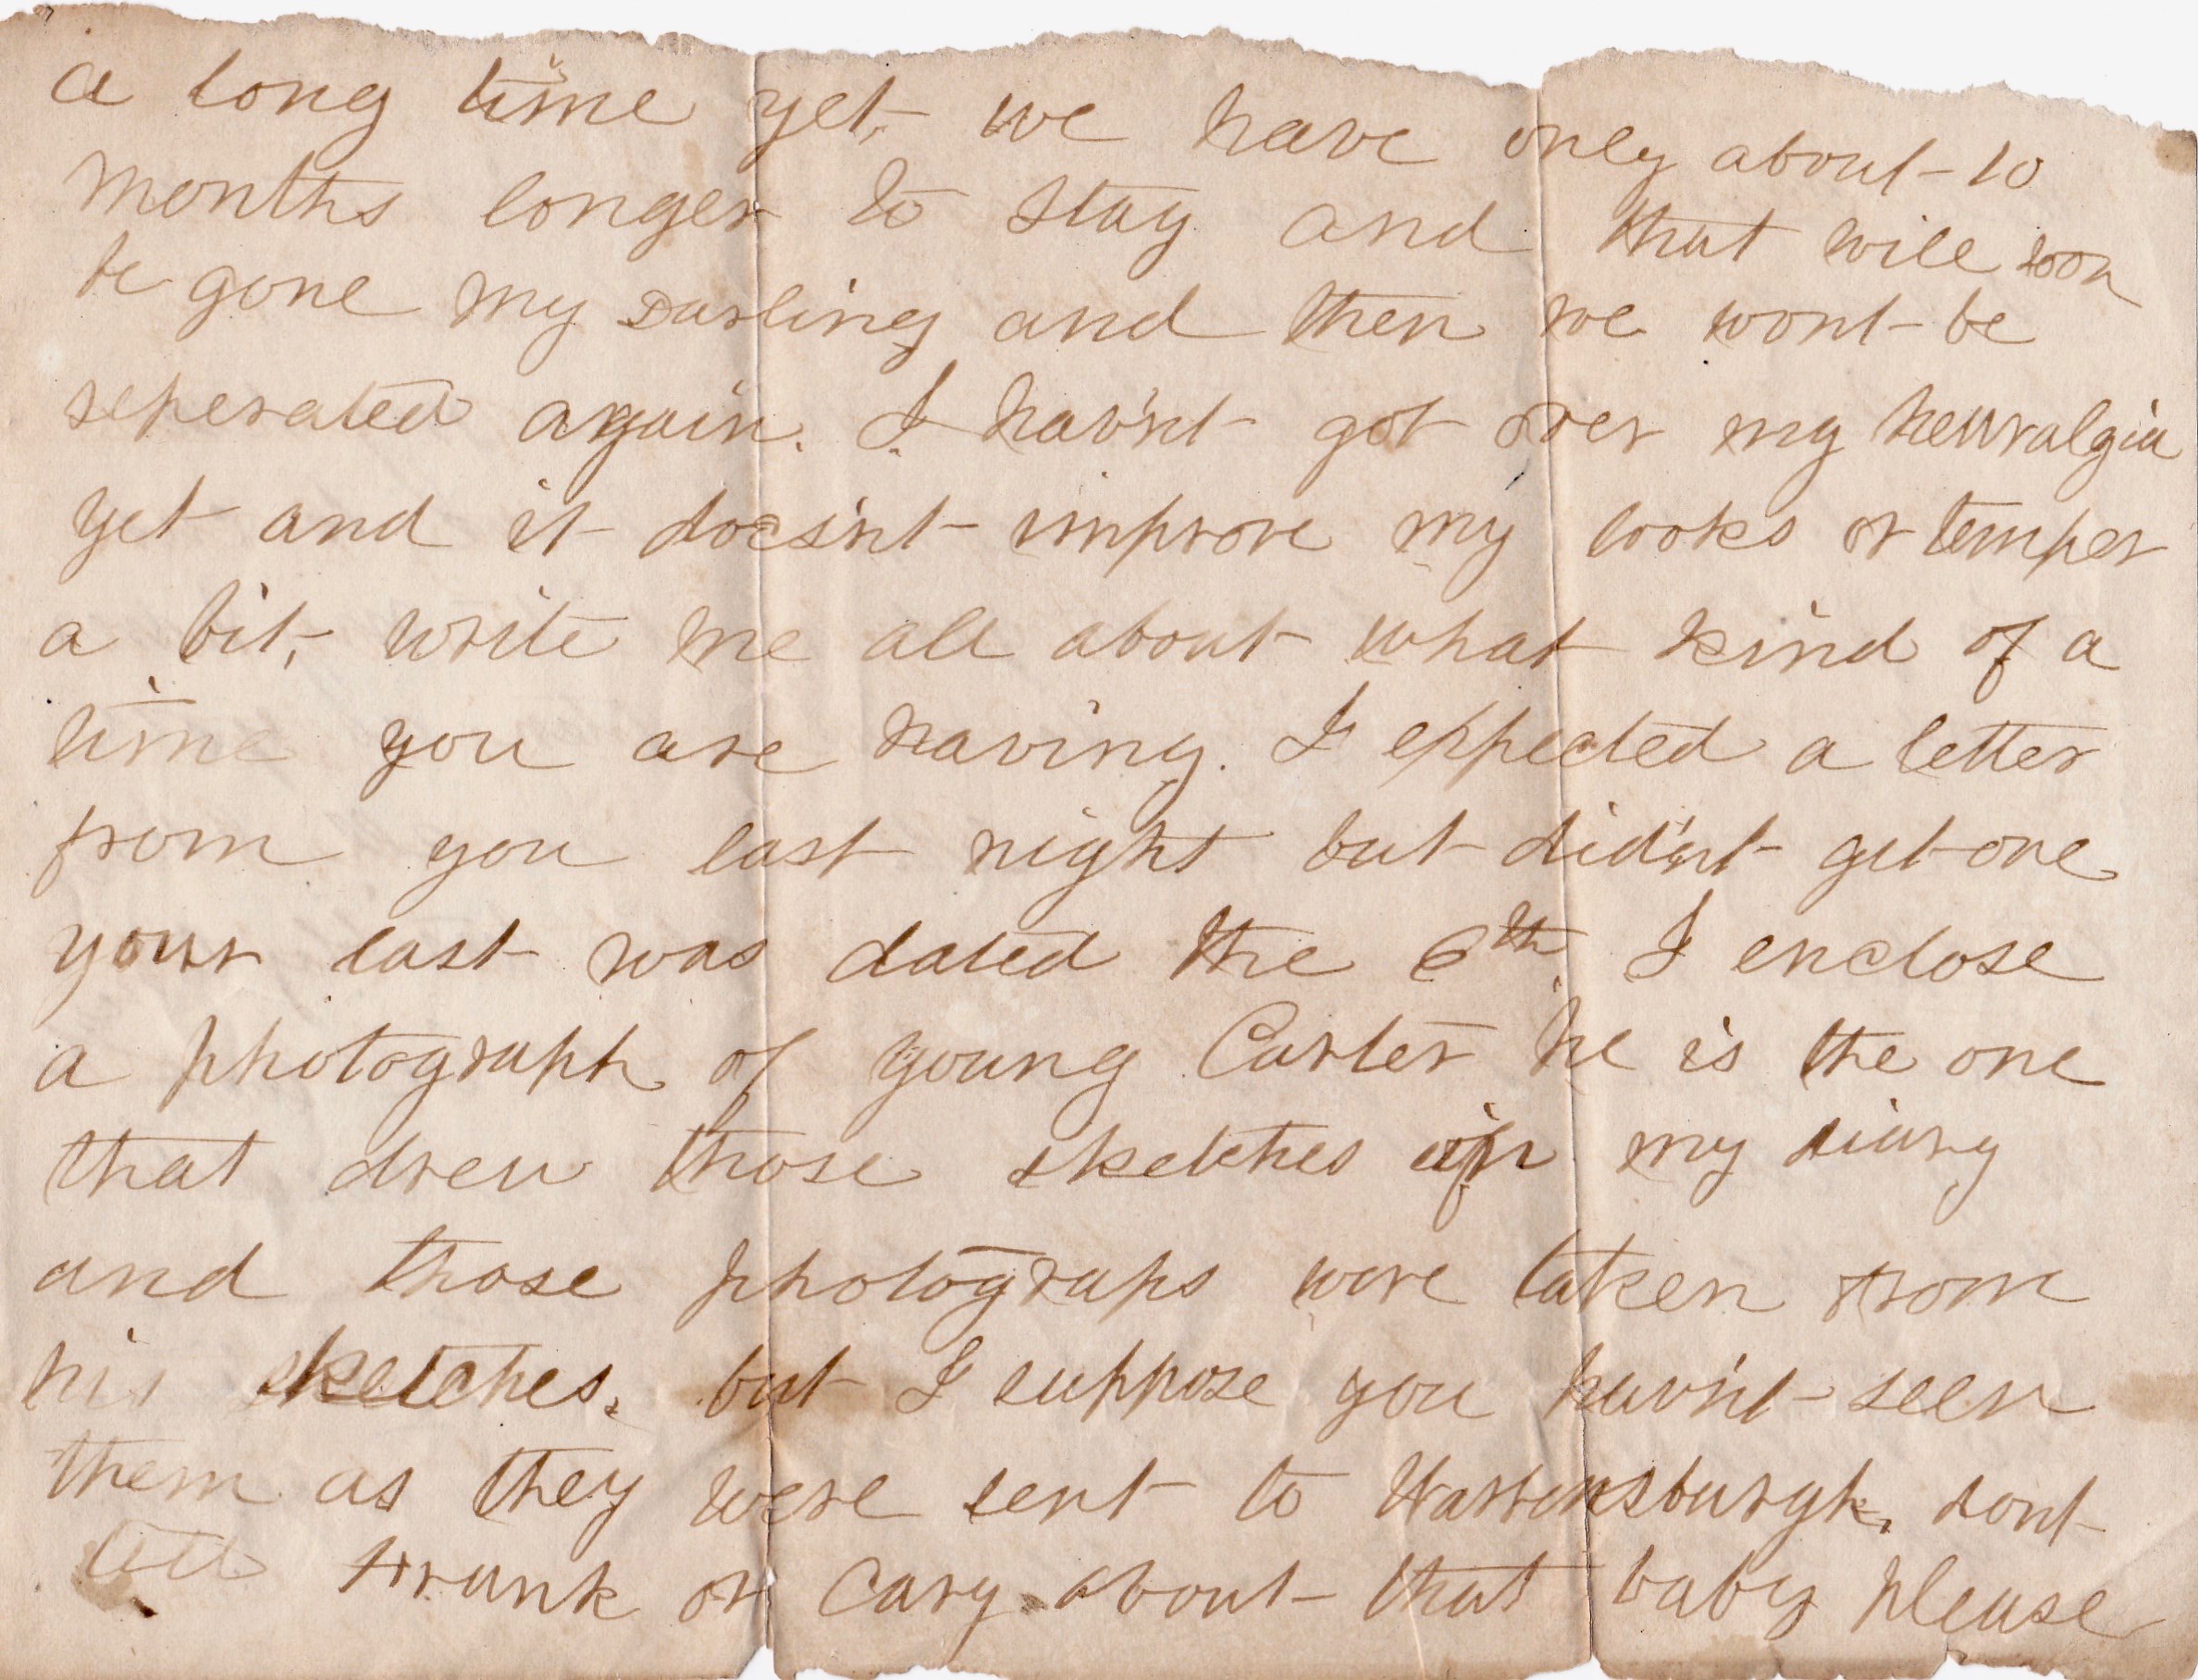 a long time yet, we have only about 10
months longer to stay and that will soon
be gone my Darling and then we wont be
seperated again. I hav'nt got over my neuralgia
yet and it does'nt improve my looks or temper
a bit, write me all about what kind of a
time you are having. I expected a letter
from you last night but did'nt get one
your last was dated the 6th I enclose
a photograph of young Carter he is the one
that drew those sketches in my diary
and those photograps were taken from
his sketches. but I suppose you hav'nt seen
them as they were sent to Warrensburgh. dont
tell Frank or Cary about that baby please